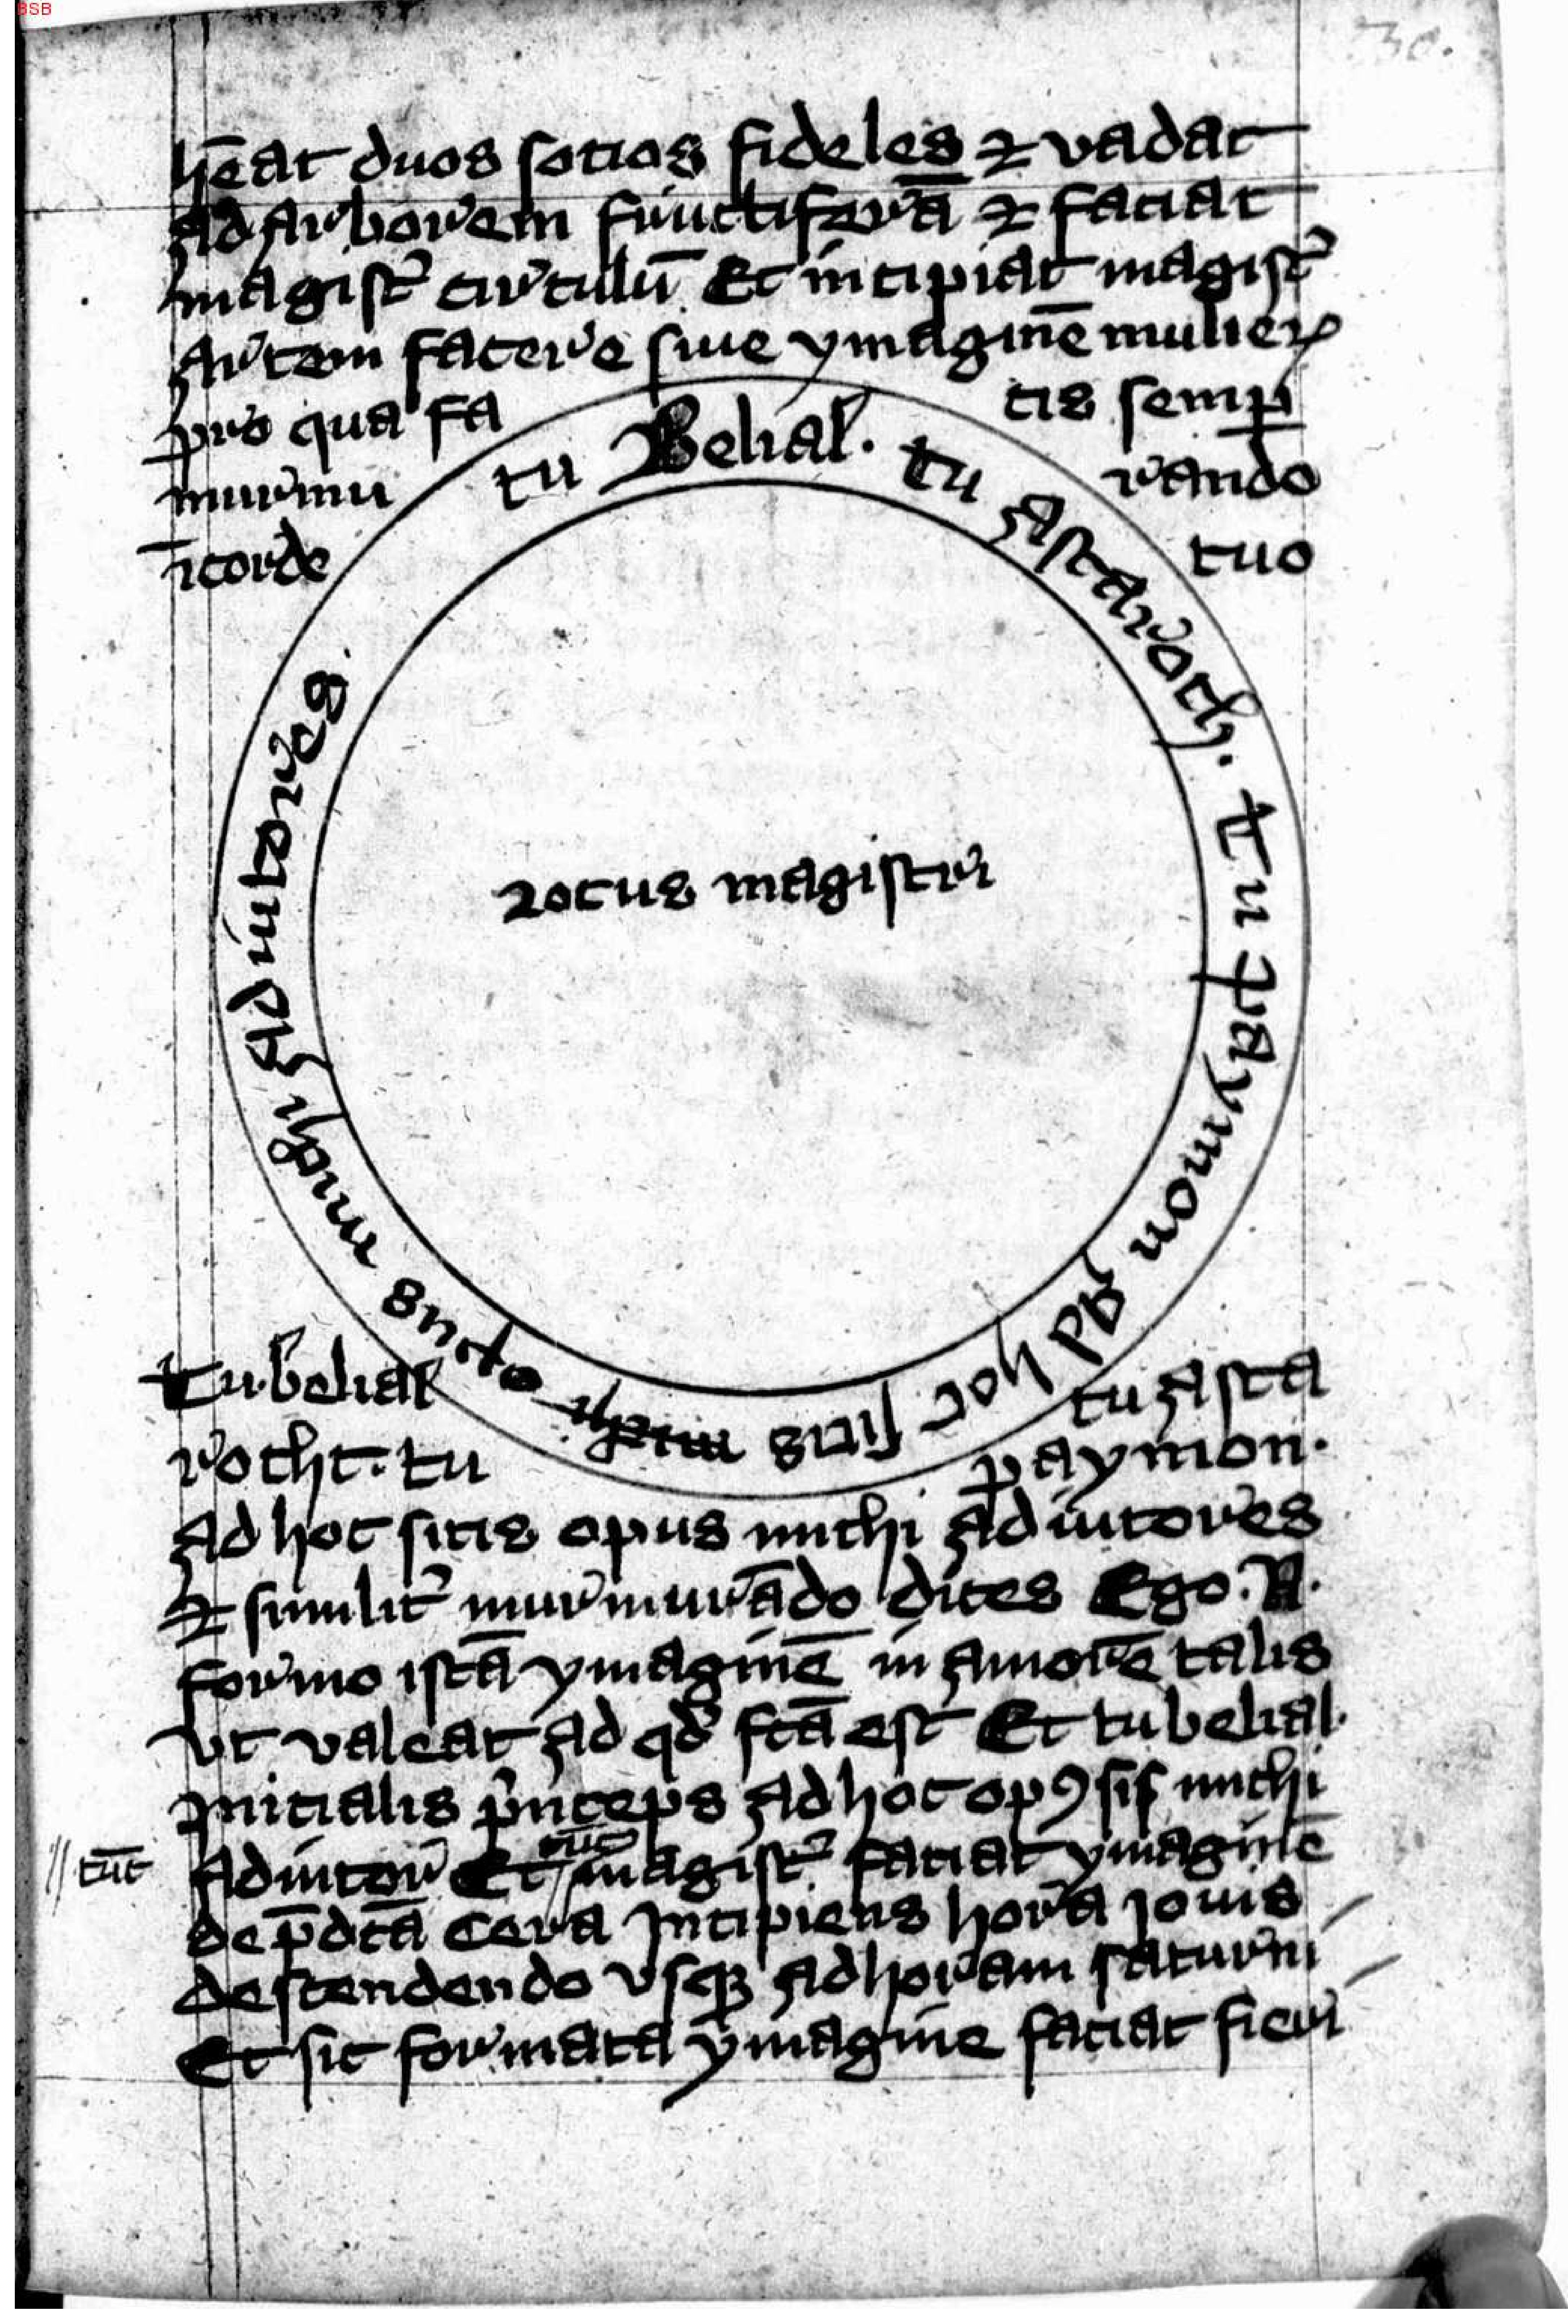 BSB
30.
hēat duos socios fideles ⁊ vadat
ad arborem fructiferā ⁊ faciat
magistr̄ circulū Et incipiat magistr̄
artem facere siue ymaginē mulierꝭ
pro qua fa cis semꝑ
murmu rando
ī corde tuo
tu Belial. tu Astaroth. tu paymon ad hoc sitis michi opus michi adiutores.
Locus magistri
tu belial tu asta
rotht. tu paymon.
ad hoc sitis opus michi adiutores
⁊ similit̄ murmurādo dices Ego .N.
formo istā ymaginē in amorē talis
vt valeat ad qd̄ fc̄ā est Et tu belial.
Inicialis pͥnceps ad hoc opꝰ sis michi
// tūc
adiutor Et magistr̄ faciat ymaginē
de p̄dc̄ā cera Incipiens hora Jouis
descendendo vsqꝫ ad horam saturni
Et sic formata ymagine faciat fieri